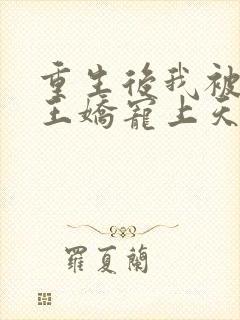 重生後我被
王嬌寵上天
羅夏蘭